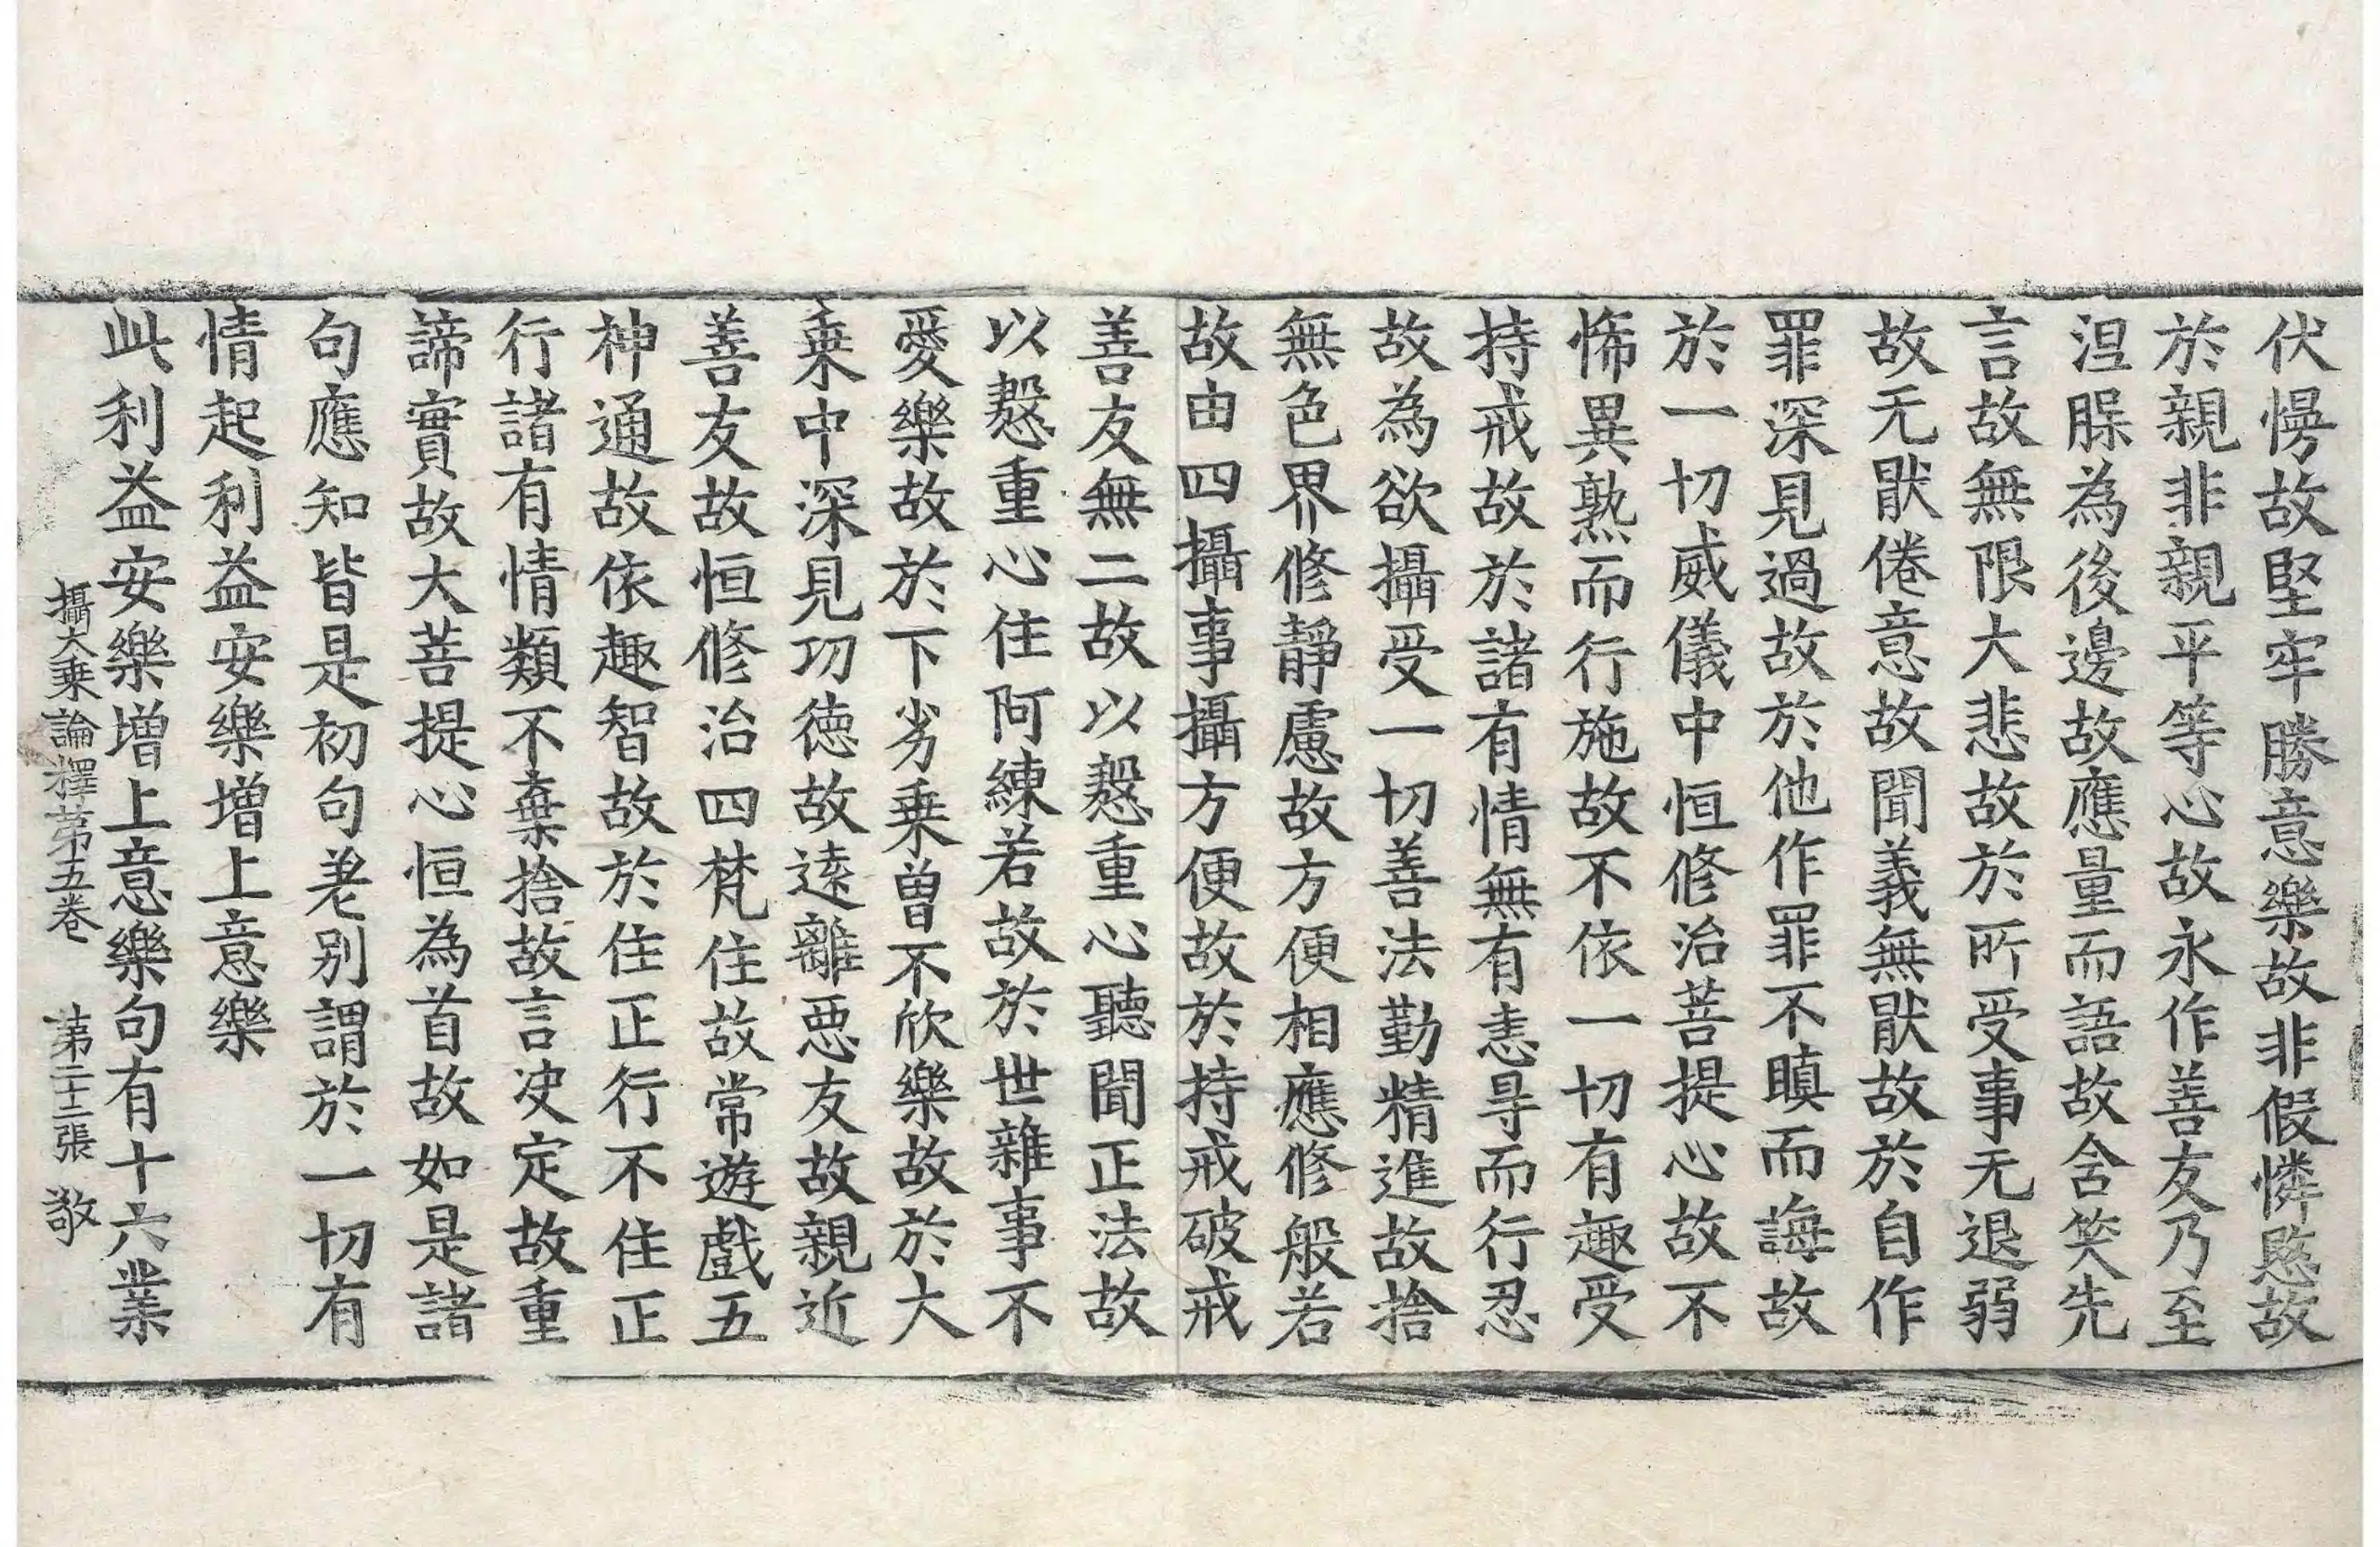 伏慢故堅牢勝意樂故非假憐愍故
於親非親平等心故永作善友乃至
涅腂為後邊故應量而語故含笑先
言故無限大悲故於所受事无退弱
故无猒倦意故聞義無猒故於自作
罪深見過故於他作罪不瞋而誨故
於一切威儀中恒修治菩提心故不
悕異熟而行施故不依一切有趣受
持戒故於諸有情無有恚㝵而行忍
故為欲攝受一切善法勤精進故捨
無色界修靜慮故方便相應修般若
故由四攝事攝方便故於持戒破戒
善友無二故以慇重心聽聞正法故
以慇重心住阿練若故於世雜事不
愛樂故於下劣乗曽不欣樂故於大
乗中深見功徳故遠離惡友故親近
善友故恒修治四梵住故常遊戲五
神通故依趣智故於住正行不住正
行諸有情類不棄捨故言决定故重
諦實故大菩提心恒為首故如是諸
句應知皆是初句差别謂於一切有
情起利益安樂增上意樂
此利益安樂增上意樂句有十六業
攝大乗論釋第五卷 第二十二張 敬